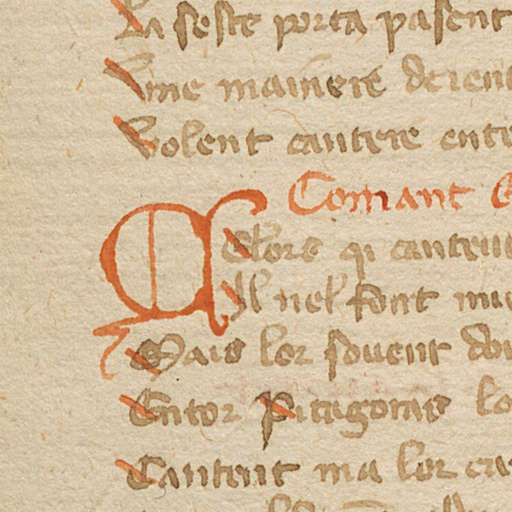 La seste porta pasent
Une mainere de ient
Volent cantere entr
Comant
Alors qi cantent
Il nel font mie
Mais lor sovent don
Entor Pitagoras lo
Cantent ma lor cre